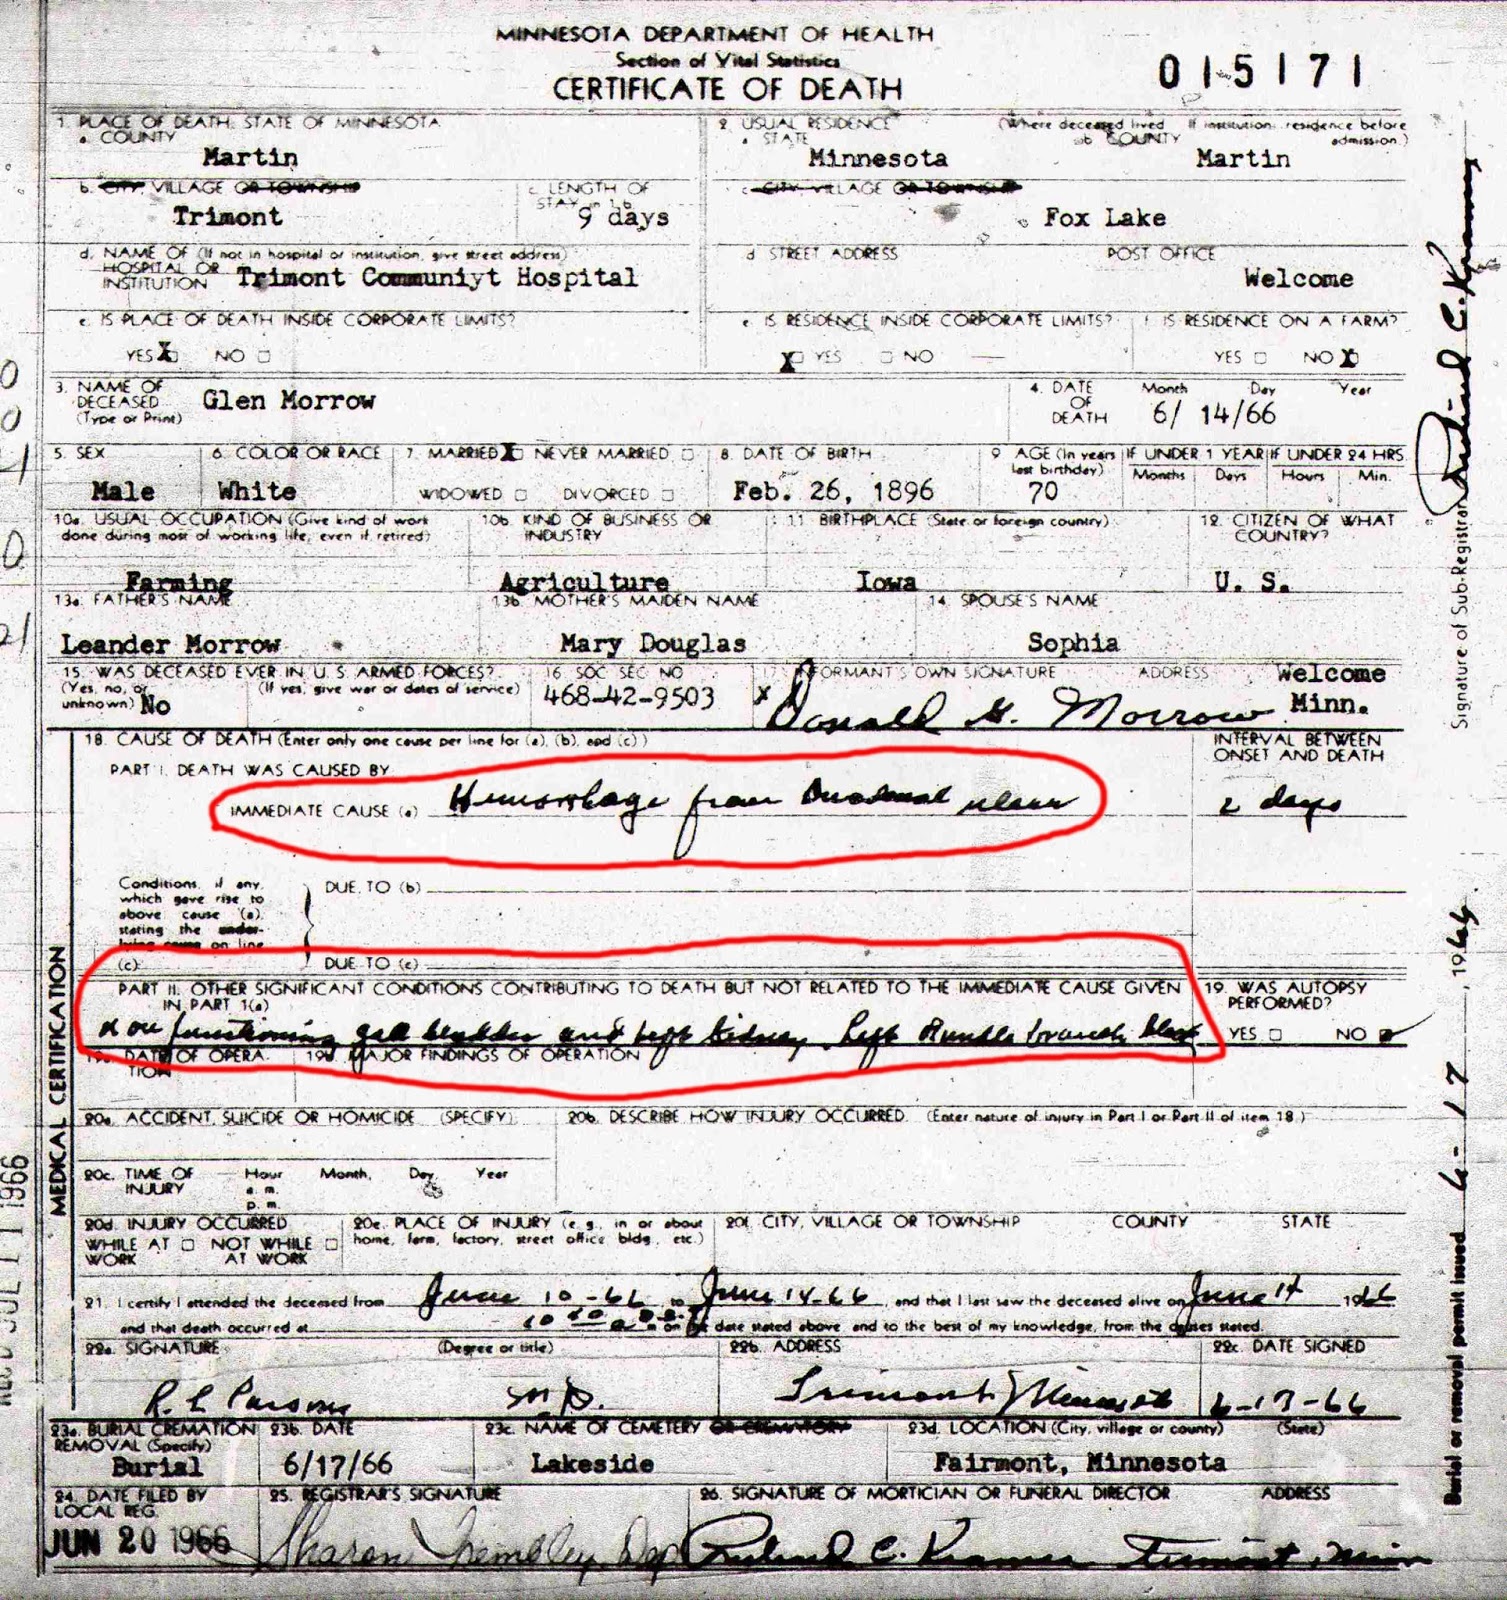 MINNESOTA DEPARTMENT OF HEALTH
Section of Vital Statistics
CERTIFICATE OF DEATH
015171
1. PLACE OF DEATH, STATE OF MINNESOTA
a. COUNTY
Martin
2. USUAL RESIDENCE (Where deceased lived. If institution, residence before admission.)
a. STATE b. COUNTY
Minnesota Martin
b. CITY, VILLAGE OR TOWNSHIP
Trimont
c. LENGTH OF STAY in 1b
9 days
c. CITY, VILLAGE OR TOWNSHIP
Fox Lake
d. NAME OF (If not in hospital or institution, give street address)
HOSPITAL OR
INSTITUTION Trimont Communiyt Hospital
d. STREET ADDRESS POST OFFICE
Welcome
e. IS PLACE OF DEATH INSIDE CORPORATE LIMITS?
YES X NO
e. IS RESIDENCE INSIDE CORPORATE LIMITS? f. IS RESIDENCE ON A FARM?
X YES NO YES NO X
3. NAME OF
DECEASED
(Type or Print)
Glen Morrow
4. DATE
OF
DEATH
Month Day Year
6/ 14/66
5. SEX
Male
6. COLOR OR RACE
White
7. MARRIED X NEVER MARRIED
WIDOWED DIVORCED
8. DATE OF BIRTH
Feb. 26, 1896
9. AGE (In years
last birthday)
70
IF UNDER 1 YEAR IF UNDER 24 HRS.
Months Days Hours Min.
10a. USUAL OCCUPATION (Give kind of work
done during most of working life, even if retired)
Farming
10b. KIND OF BUSINESS OR
INDUSTRY
Agriculture
11. BIRTHPLACE (State or foreign country)
Iowa
12. CITIZEN OF WHAT
COUNTRY?
U. S.
13a. FATHER'S NAME
Leander Morrow
13b. MOTHER'S MAIDEN NAME
Mary Douglas
14. SPOUSE'S NAME
Sophia
15. WAS DECEASED EVER IN U. S. ARMED FORCES?
(Yes, no, or unknown) (If yes, give war or dates of service)
No
16. SOC. SEC. NO.
468-42-9503
17. INFORMANT'S OWN SIGNATURE ADDRESS
X Donald G. Morrow Welcome
Minn.
18. CAUSE OF DEATH (Enter only one cause per line for (a), (b), and (c))
INTERVAL BETWEEN
ONSET AND DEATH
PART I. DEATH WAS CAUSED BY
IMMEDIATE CAUSE (a) Hemorrhage from Duodenal ulcer
2 days
Conditions, if any,
which gave rise to
above cause (a),
stating the under-
lying cause on line
(c).
DUE TO (b)
DUE TO (c)
PART II. OTHER SIGNIFICANT CONDITIONS CONTRIBUTING TO DEATH BUT NOT RELATED TO THE IMMEDIATE CAUSE GIVEN
IN PART 1(a)
Non functioning gall bladder and left kidney. Left Bundle branch block
19. WAS AUTOPSY
PERFORMED?
YES NO
19a. DATE OF OPERA-
TION
19b. MAJOR FINDINGS OF OPERATION
20a. ACCIDENT, SUICIDE OR HOMICIDE (SPECIFY)
20b. DESCRIBE HOW INJURY OCCURRED. (Enter nature of injury in Part I or Part II of item 18.)
20c. TIME OF
INJURY
Hour Month, Day, Year
a. m.
p. m.
20d. INJURY OCCURRED
WHILE AT WORK NOT WHILE AT WORK
20e. PLACE OF INJURY (e. g., in or about
home, farm, factory, street office bldg., etc.)
20f. CITY, VILLAGE OR TOWNSHIP COUNTY STATE
21. I certify I attended the deceased from June 10-66 to June 14-66, and that I last saw the deceased alive on June 14 1966
and that death occurred at m on the date stated above and to the best of my knowledge, from the causes stated.
22a. SIGNATURE (Degree or title)
R. L Parsons M.D.
22b. ADDRESS
Trimont, Minnesota
22c. DATE SIGNED
6-17-66
23a. BURIAL CREMATION
REMOVAL (Specify)
Burial
23b. DATE
6/17/66
23c. NAME OF CEMETERY OR CREMATORY
Lakeside
23d. LOCATION (City, village or county) (State)
Fairmont, Minnesota
24. DATE FILED BY
LOCAL REG.
JUN 20 1966
25. REGISTRAR'S SIGNATURE
Sharon Trembley, Dep
26. SIGNATURE OF MORTICIAN OR FUNERAL DIRECTOR ADDRESS
C. Kramer Trimont, Minn
MEDICAL CERTIFICATION
Signature of Sub-Registrar C. Kramer
Burial or removal permit issued 6-17, 1966
JUL 11 1966